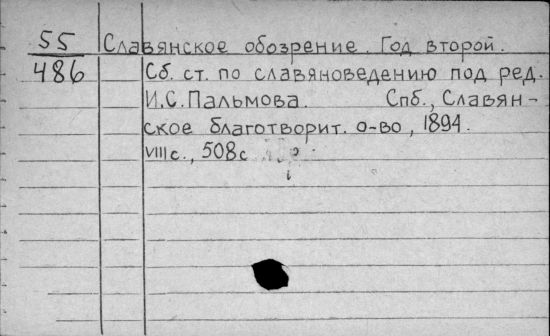 55 Славянское обозрение. Год второй.
486 Сб. ст. по славяноведению под ред.
И.С.Пальмова. Спб., Славян-
ское благотворит. о-во, 1894.
VIII с., 508с